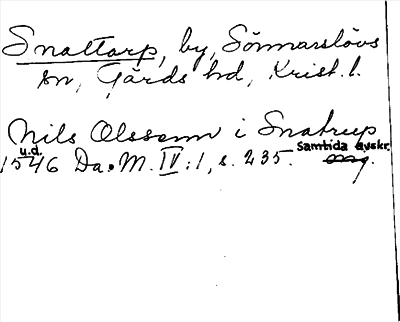 Snattarp, by, Sönnarslövs
sn, Gärds hd, Krist. l.
Nils Olssenn i Snatrup
u.d. Samtida avskr.
1546 Da. M. IV:1, s. 235. orig.